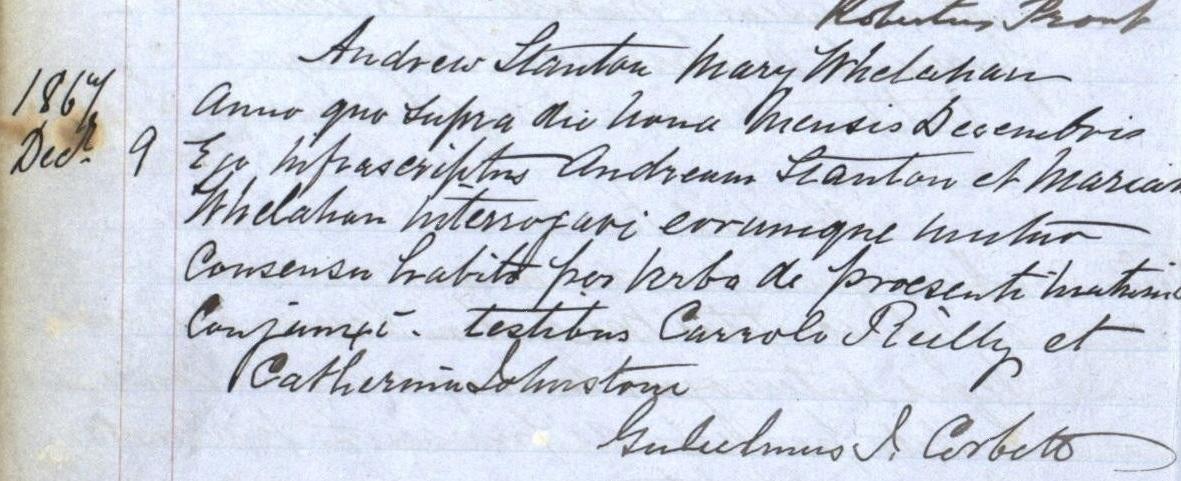 Robertus
Andrew Stanton Mary Whelahan
1867
Anno quo Supra die Nona Mensis Decembris
Decr. 9 Ego Infrascriptus Andream Stanton et Mariam
Whelahan Interrogavi eorumque mutuo
Consensu habito per verba de proesenti matrim
Conjunxi. testibus Carrolo Reilly et
Catherina Johnstone
Gulielmus J. Corbett